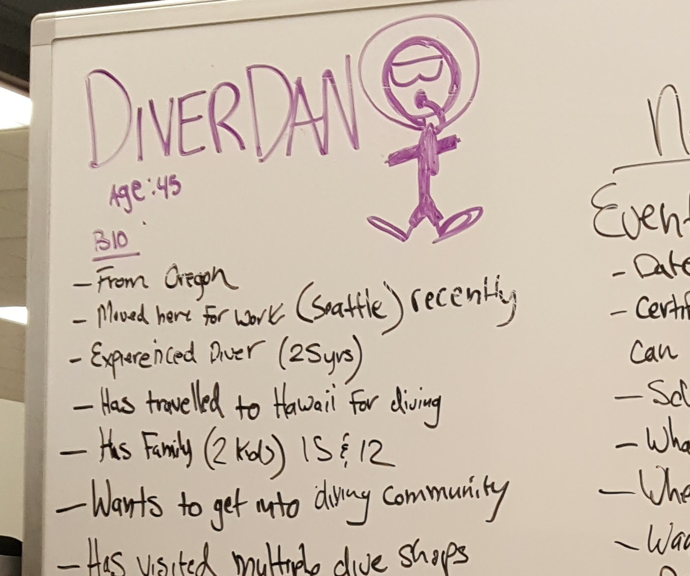 DIVER DAN
Age: 45
BIO
- From Oregon
- Moved here for work (Seattle) recently
- Expereinced Diver (25yrs)
- Has travelled to Hawaii for diving
- Has Family (2 Kids) 15 & 12
- Wants to get into diving community
- Has visited multiple dive shops
N
Even
- Date
- Certif
can
- Sc
- Wha
- Whe
- Wa